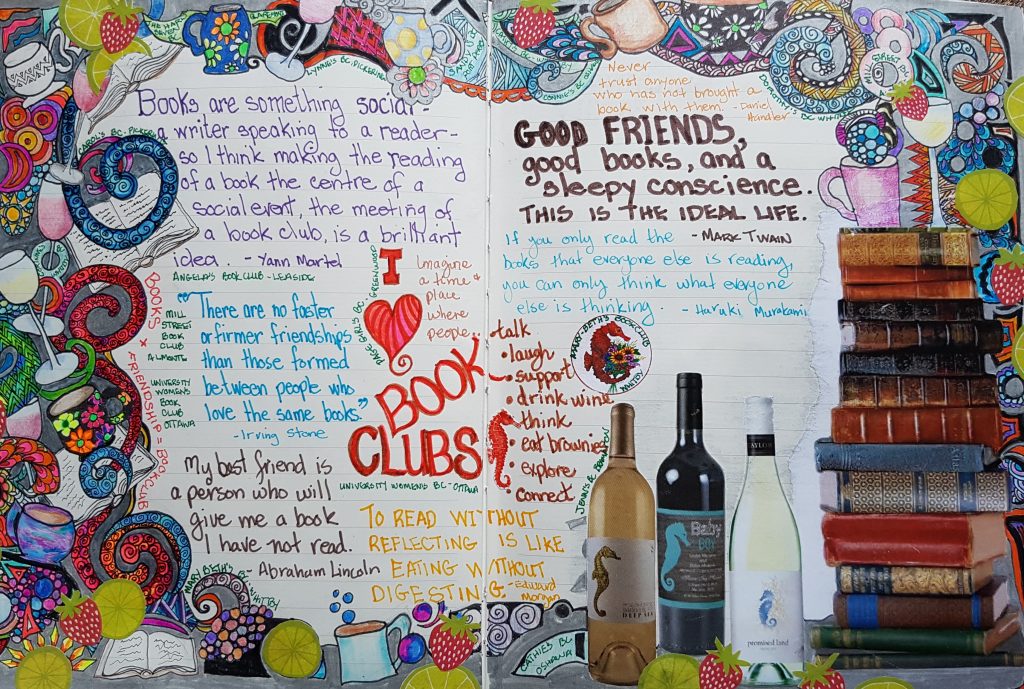 Books are something social -
a writer speaking to a reader -
so I think making the reading
of a book the centre of a
social event, the meeting of
a book club, is a brilliant
idea. - Yann Martel
ANGELA'S BOOK CLUB - LEASIDE
"There are no faster
or firmer friendships
than those formed
between people who
love the same books."
- Irving Stone
MILL
STREET
BOOK
CLUB
ALMONTE
UNIVERSITY
WOMENS
BOOK
CLUB
OTTAWA
BOOKS + FRIENDSHIP = BOOK CLUB
My best friend is
a person who will
give me a book
I have not read.
- Abraham Lincoln
I
BOOK
CLUBS
PAGE GIRLS BC GREENWOOD
UNIVERSITY WOMENS BC - OTTAWA
Imagine
a time &
place
where
people...
talk
• laugh
• support
• drink wine
• think
• eat brownies
• explore
• connect
TO READ WITHOUT
REFLECTING IS LIKE
EATING WITHOUT
DIGESTING - Edward
Morgan
LYNNE'S BC - PICKERING
CAROL'S BC - PICKERING
MARY BETH'S BC WHITBY
CONNIE'S BC
Never
trust anyone
who has not brought a
book with them. - Daniel
Handler
DOROTHY'S BC WHITBY
MILL STREET
GOOD FRIENDS,
good books, and a
sleepy conscience.
THIS IS THE IDEAL LIFE.
- MARK TWAIN
If you only read the
books that everyone else is reading,
you can only think what everyone
else is thinking. - Haruki Murakami
MARY-BETH'S BOOK CLUB
CATHIE'S BC
OSHAWA
Baby
DEEP SEA
promised land